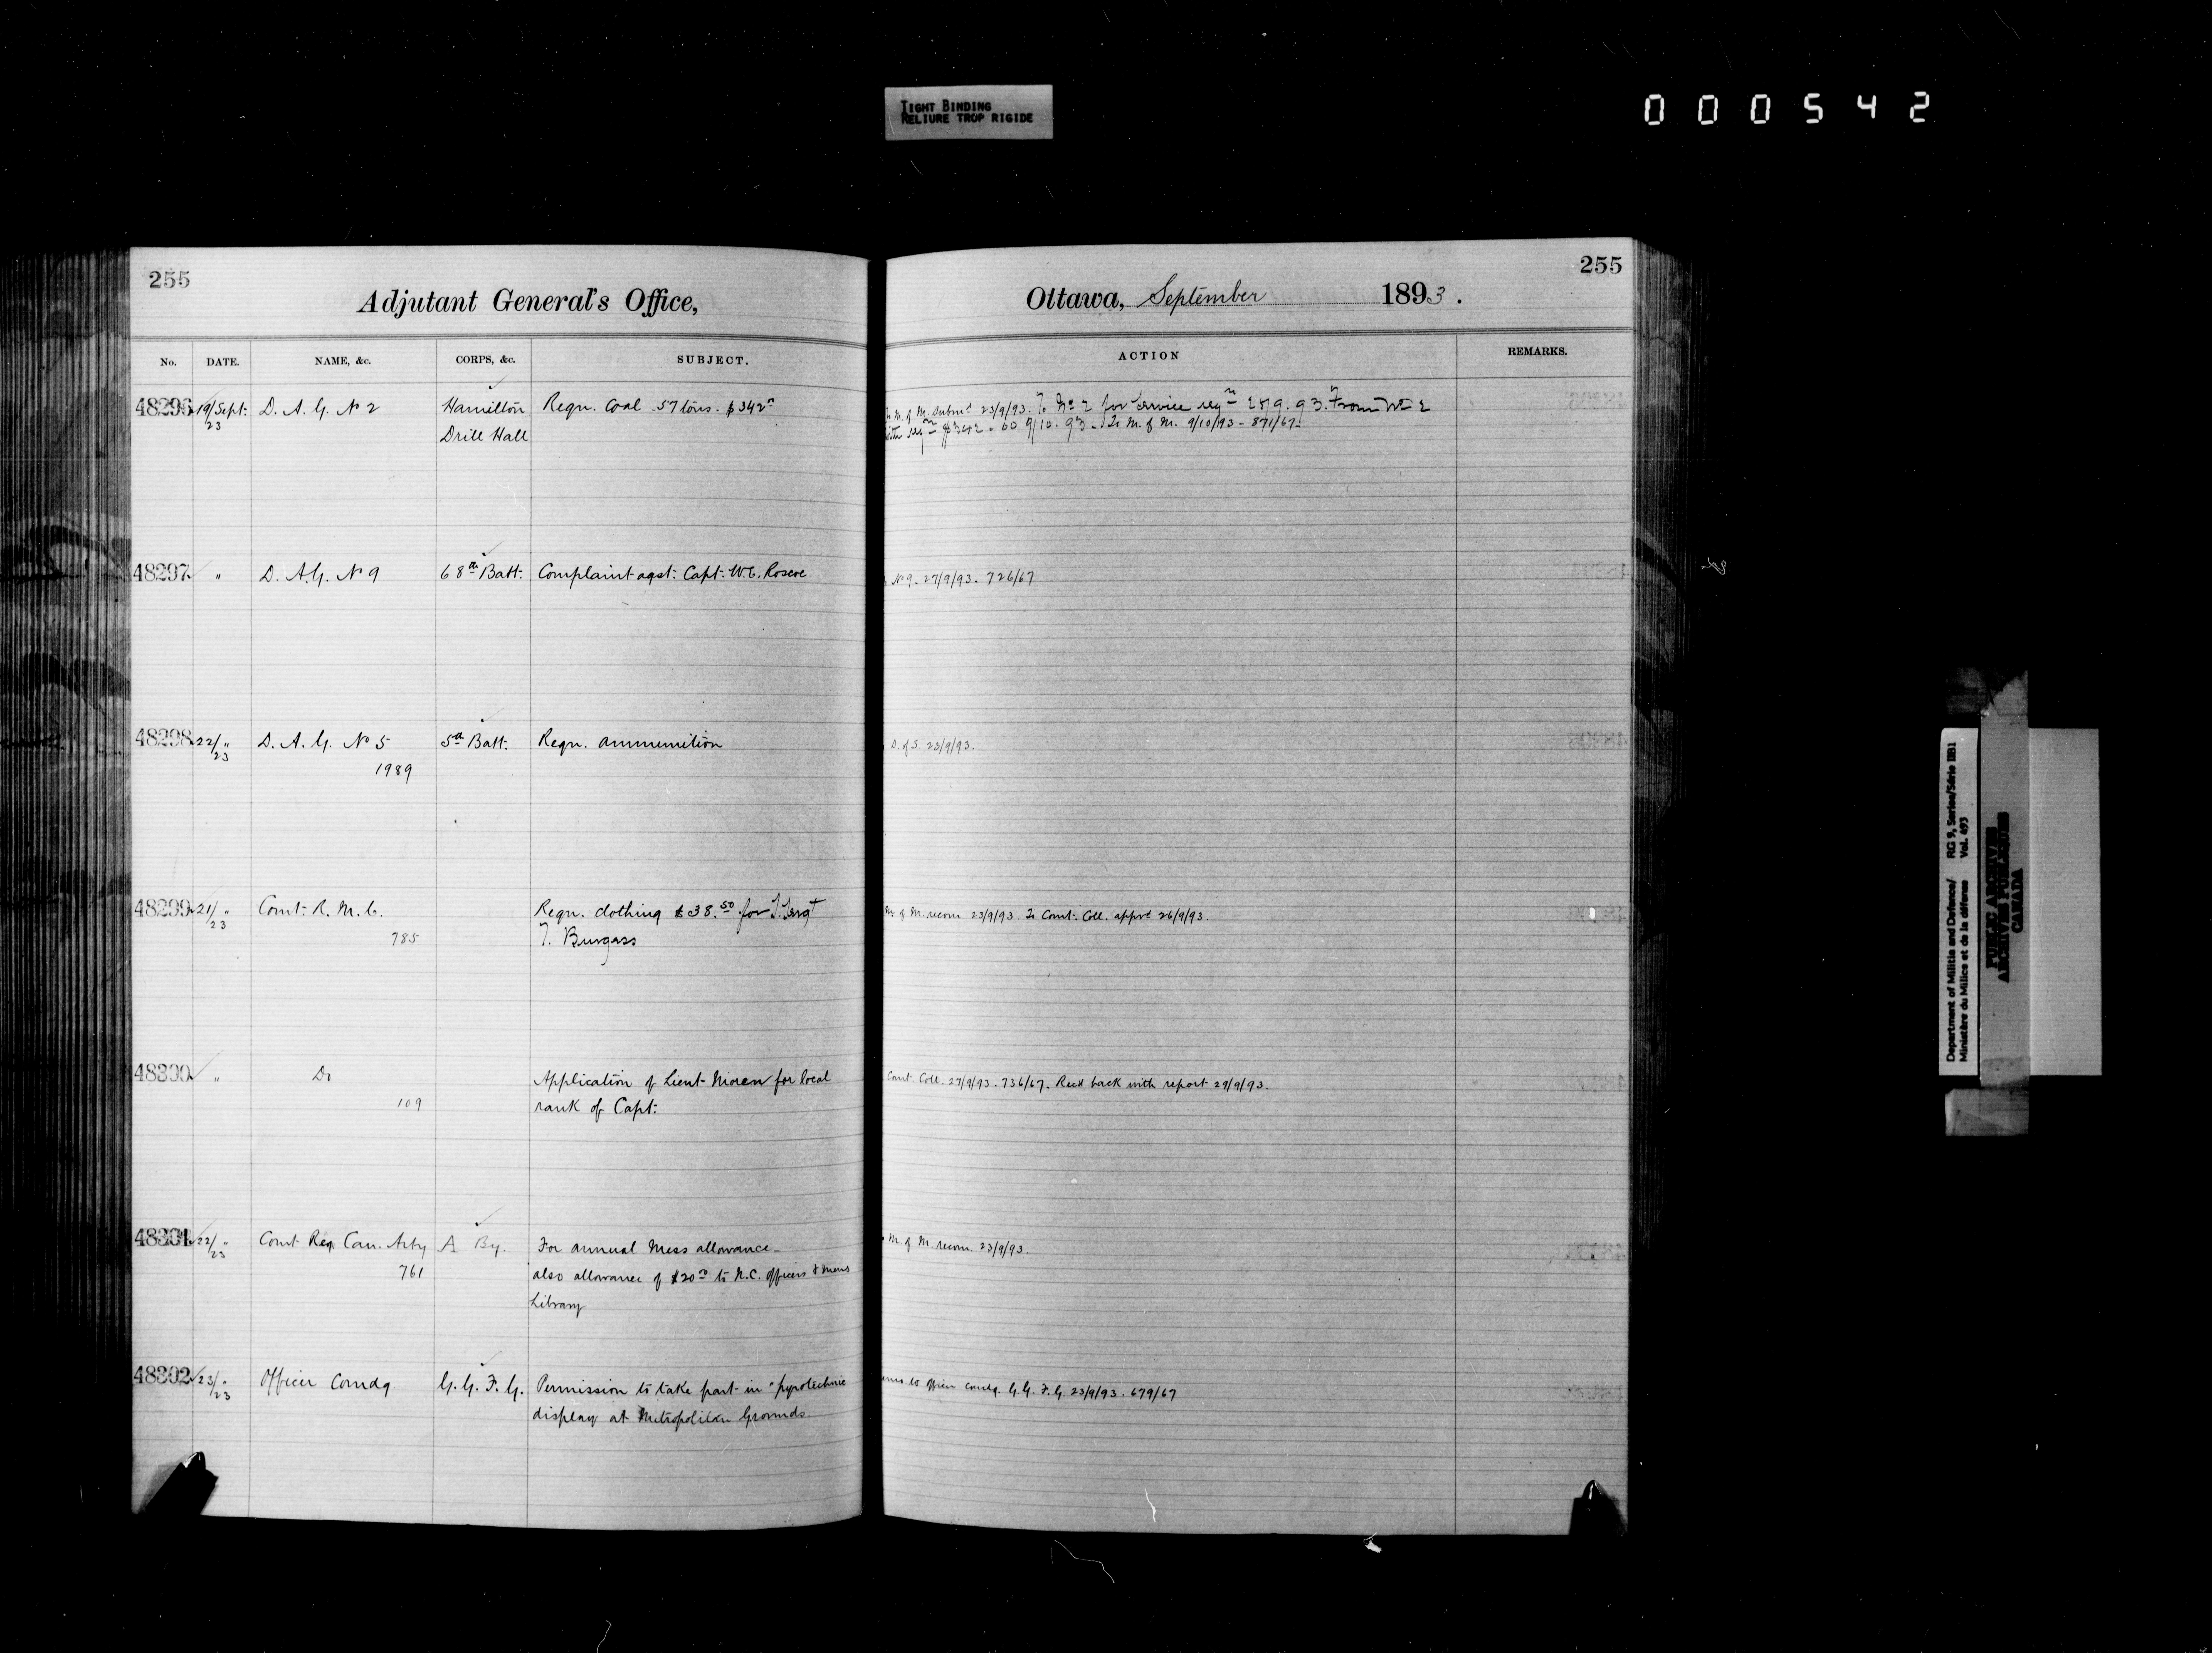 TIGHT BINDING
RELIURE TROP RIGIDE
000542
255
Adjutant General's Office,
No. DATE. NAME, &c. CORPS, &c. SUBJECT.
48296 19/Sept: 23 D. A. G. No 2 Hamilton Regn. Coal 57 tons. $342
Drill Hall
48297 " D. A. G. No 9 68th Batt: Complaint agst: Capt: W.C. Roscoe
48298 22/" 23 D. A. G. No 5 5th Batt. Regn. ammunition
1989
48299 21/" 23 Comt: R. M. C. Regn. clothing $38.50 for S. Sergt
785 T. Burgess
48300 " Do Application of Lieut Moren for local
109 rank of Capt:
48301 22/" 23 Comt Reg. Can. Arty A By. For annual Mess allowance
761 also allowance of $20 to N.C. Officers & mens
Library
48302 23/" 23 Officer Comdg G. G. F. G. Permission to take part in "pyrotechnic
display at Metropolitan Grounds
255
Ottawa, September 1893.
ACTION REMARKS.
M. of M. submd 23/9/93. To No 2 for Service regn From No 2
with regn $342.00 9/10.93. To M. of M. 9/10/93 - 871/67.
No 9. 27/9/93. 726/67
D. of S. 23/9/93.
M. of M. recom. 23/9/93. To Comt. Coll. apprd 26/9/93.
Comt. Coll. 27/9/93. 736/67. Recd back with report 29/9/93.
M. of M. recom. 23/9/93.
to Officer Comdg. G. G. F. G. 23/9/93. 679/67
Department of Militia and Defence/ RG 9, Series/Série IIB1
Ministère du Milice et de la défense Vol. 493
PUBLIC ARCHIVES
ARCHIVES PUBLIQUES
CANADA